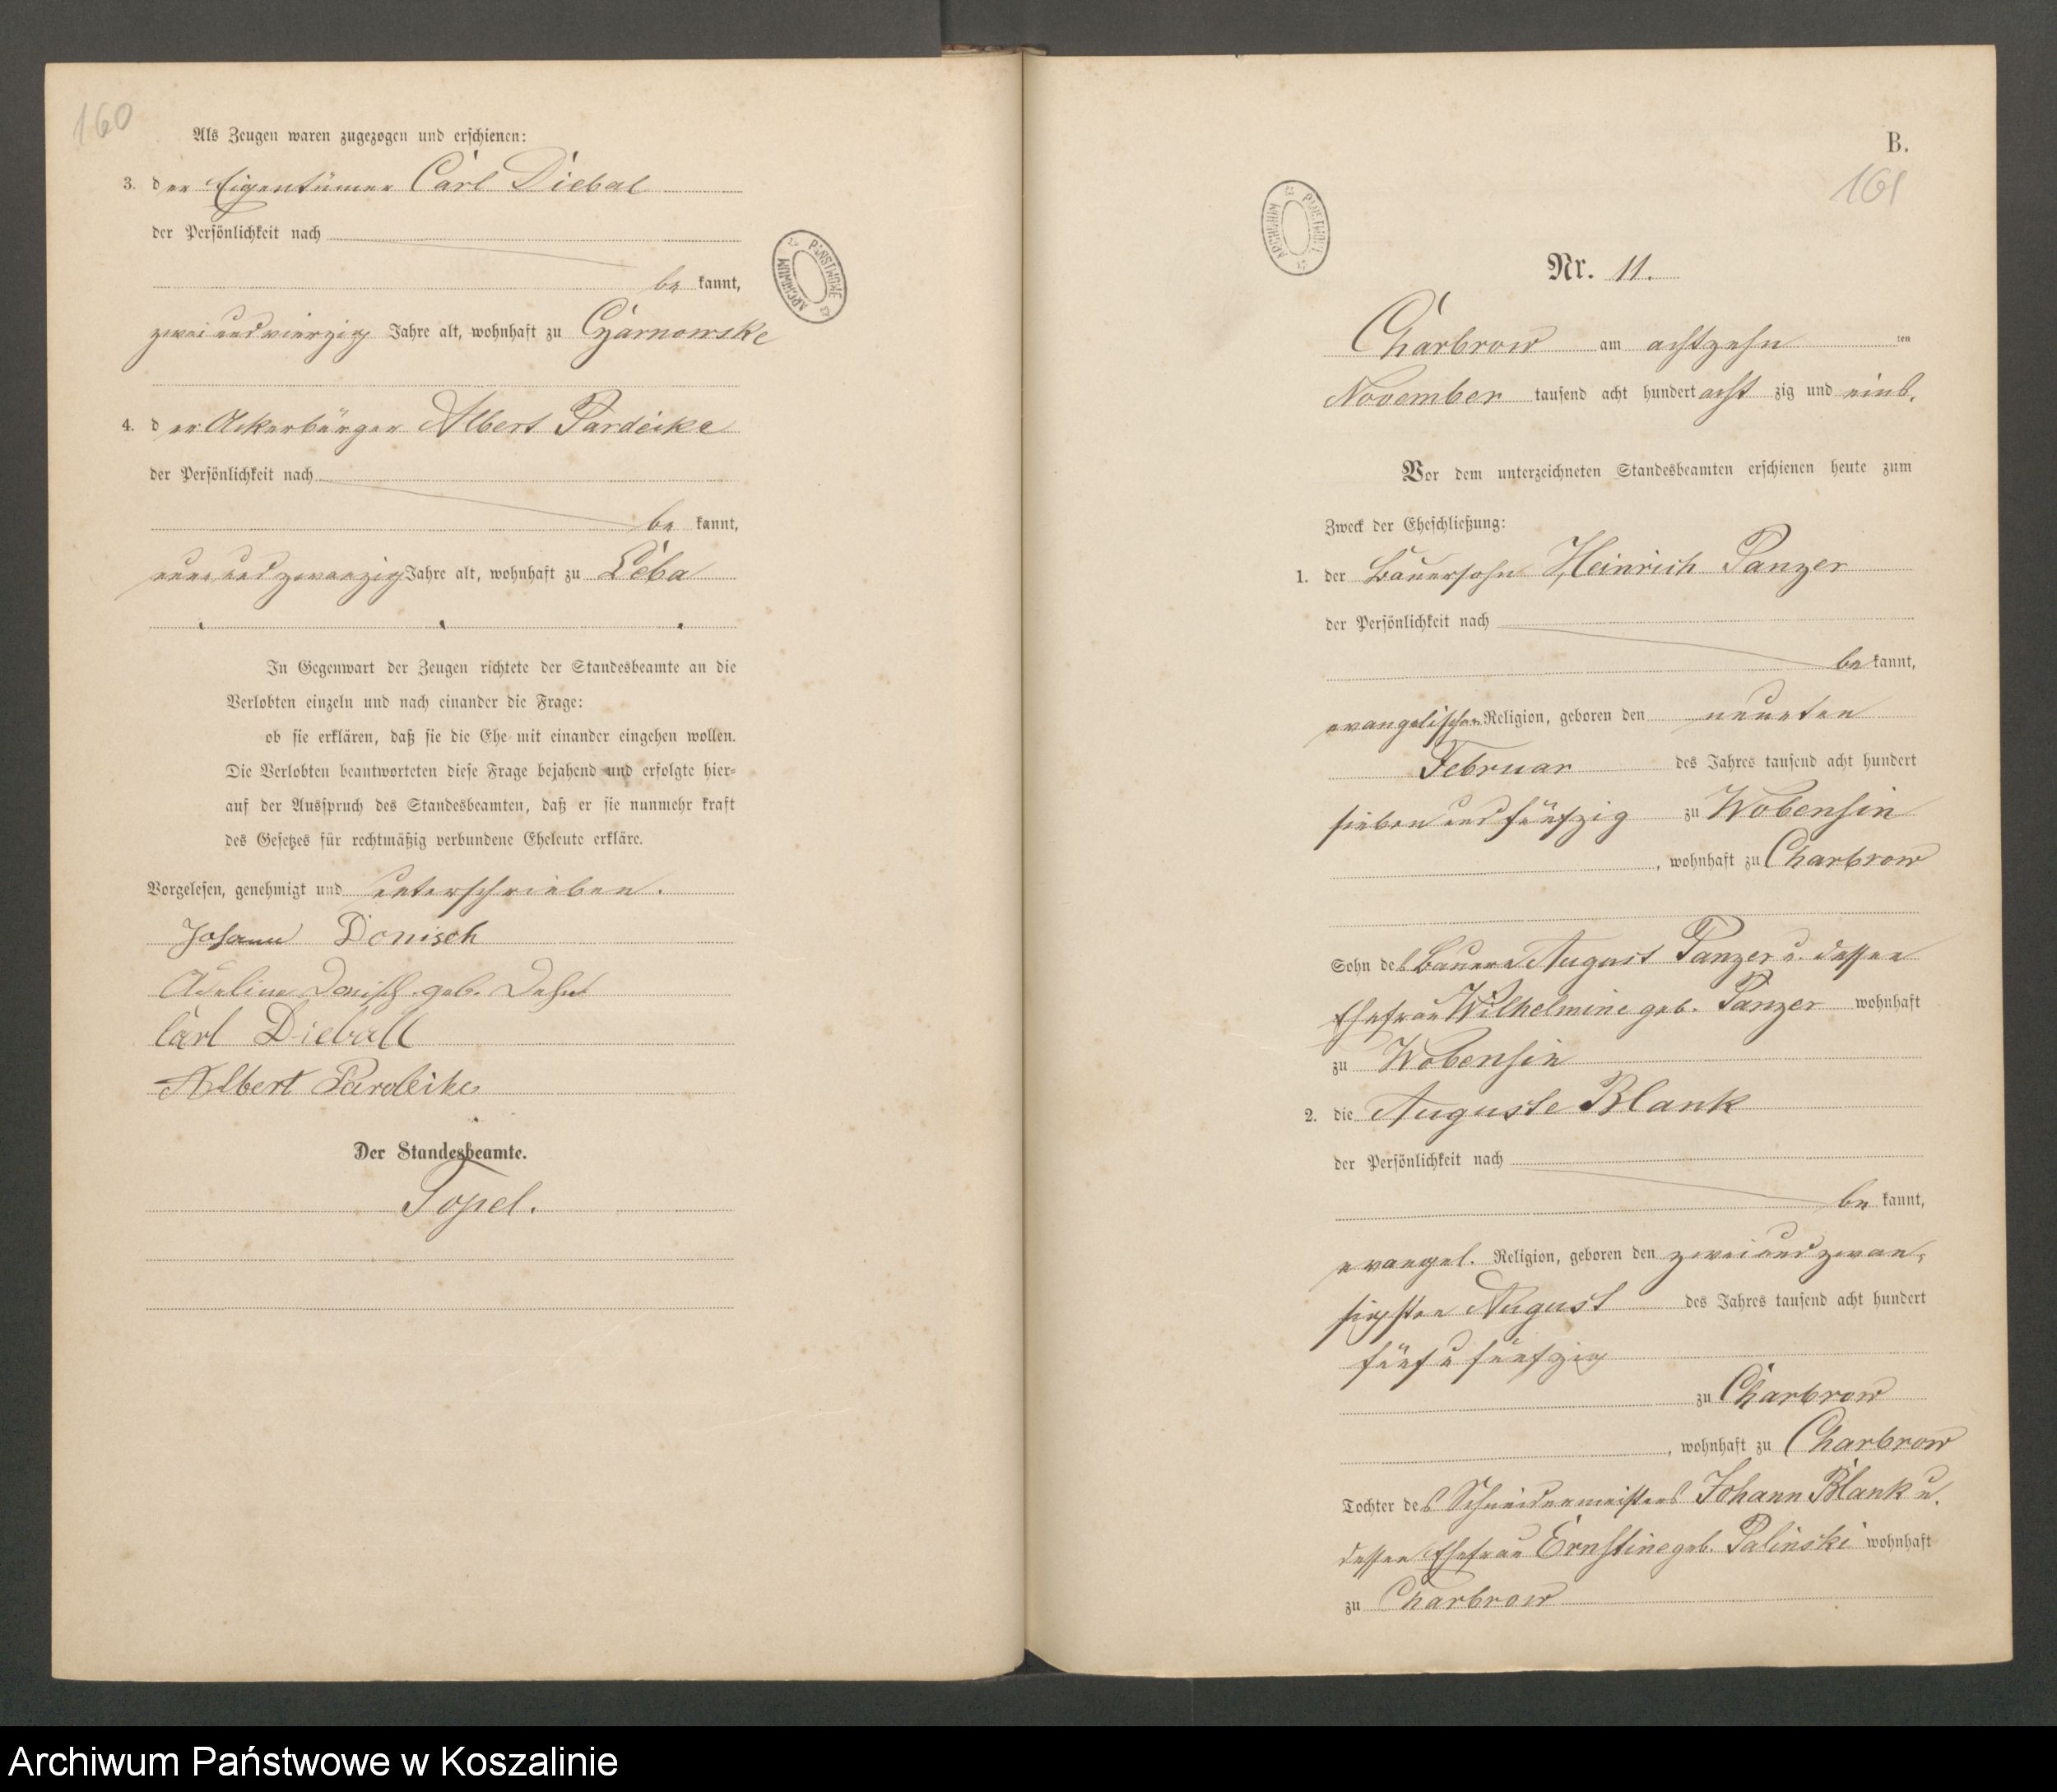 160
Als Zeugen waren zugezogen und erschienen:
3. der Eigentümer Carl Diebal
der Persönlichkeit nach
be kannt,
zwei und vierzig Jahre alt, wohnhaft zu Czarnowske
4. der Ackerbürger Albert Pardeike
der Persönlichkeit nach
be kannt,
neun und zwanzig Jahre alt, wohnhaft zu Leba
In Gegenwart der Zeugen richtete der Standesbeamte an die
Verlobten einzeln und nach einander die Frage:
ob sie erklären, daß sie die Ehe mit einander eingehen wollen.
Die Verlobten beantworteten diese Frage bejahend und erfolgte hier=
auf der Ausspruch des Standesbeamten, daß er sie nunmehr kraft
des Gesetzes für rechtmäßig verbundene Eheleute erkläre.
Vorgelesen, genehmigt und unterschrieben.
Johann Donisch
Adeline Donisch geb. Dehn
Carl Dieball
Albert Pardeike
Der Standesbeamte.
Topel.
ARCHIWUM PAŃSTWOWE
B.
161
ARCHIWUM PAŃSTWOWE
Nr. 11.
Charbrow am achtzehn ten
November tausend acht hundert acht zig und eins.
Vor dem unterzeichneten Standesbeamten erschienen heute zum
Zweck der Eheschließung:
1. der Bauersohn Heinrich Panzer
der Persönlichkeit nach
be kannt,
evangelischer Religion, geboren den neunten
Februar des Jahres tausend acht hundert
sieben und fünfzig zu Wobensin
, wohnhaft zu Charbrow
Sohn des Bauern August Panzer u. dessen
Ehefrau Wilhelmine geb. Panzer wohnhaft
zu Wobensin
2. die Auguste Blank
der Persönlichkeit nach
be kannt,
evangel. Religion, geboren den zwei und zwan,
zigsten August des Jahres tausend acht hundert
fünf u fünfzig
zu Charbrow
, wohnhaft zu Charbrow
Tochter des Schneidermeisters Johann Blank u.
dessen Ehefrau Ernstine geb. Palinski wohnhaft
zu Charbrow
Archiwum Państwowe w Koszalinie